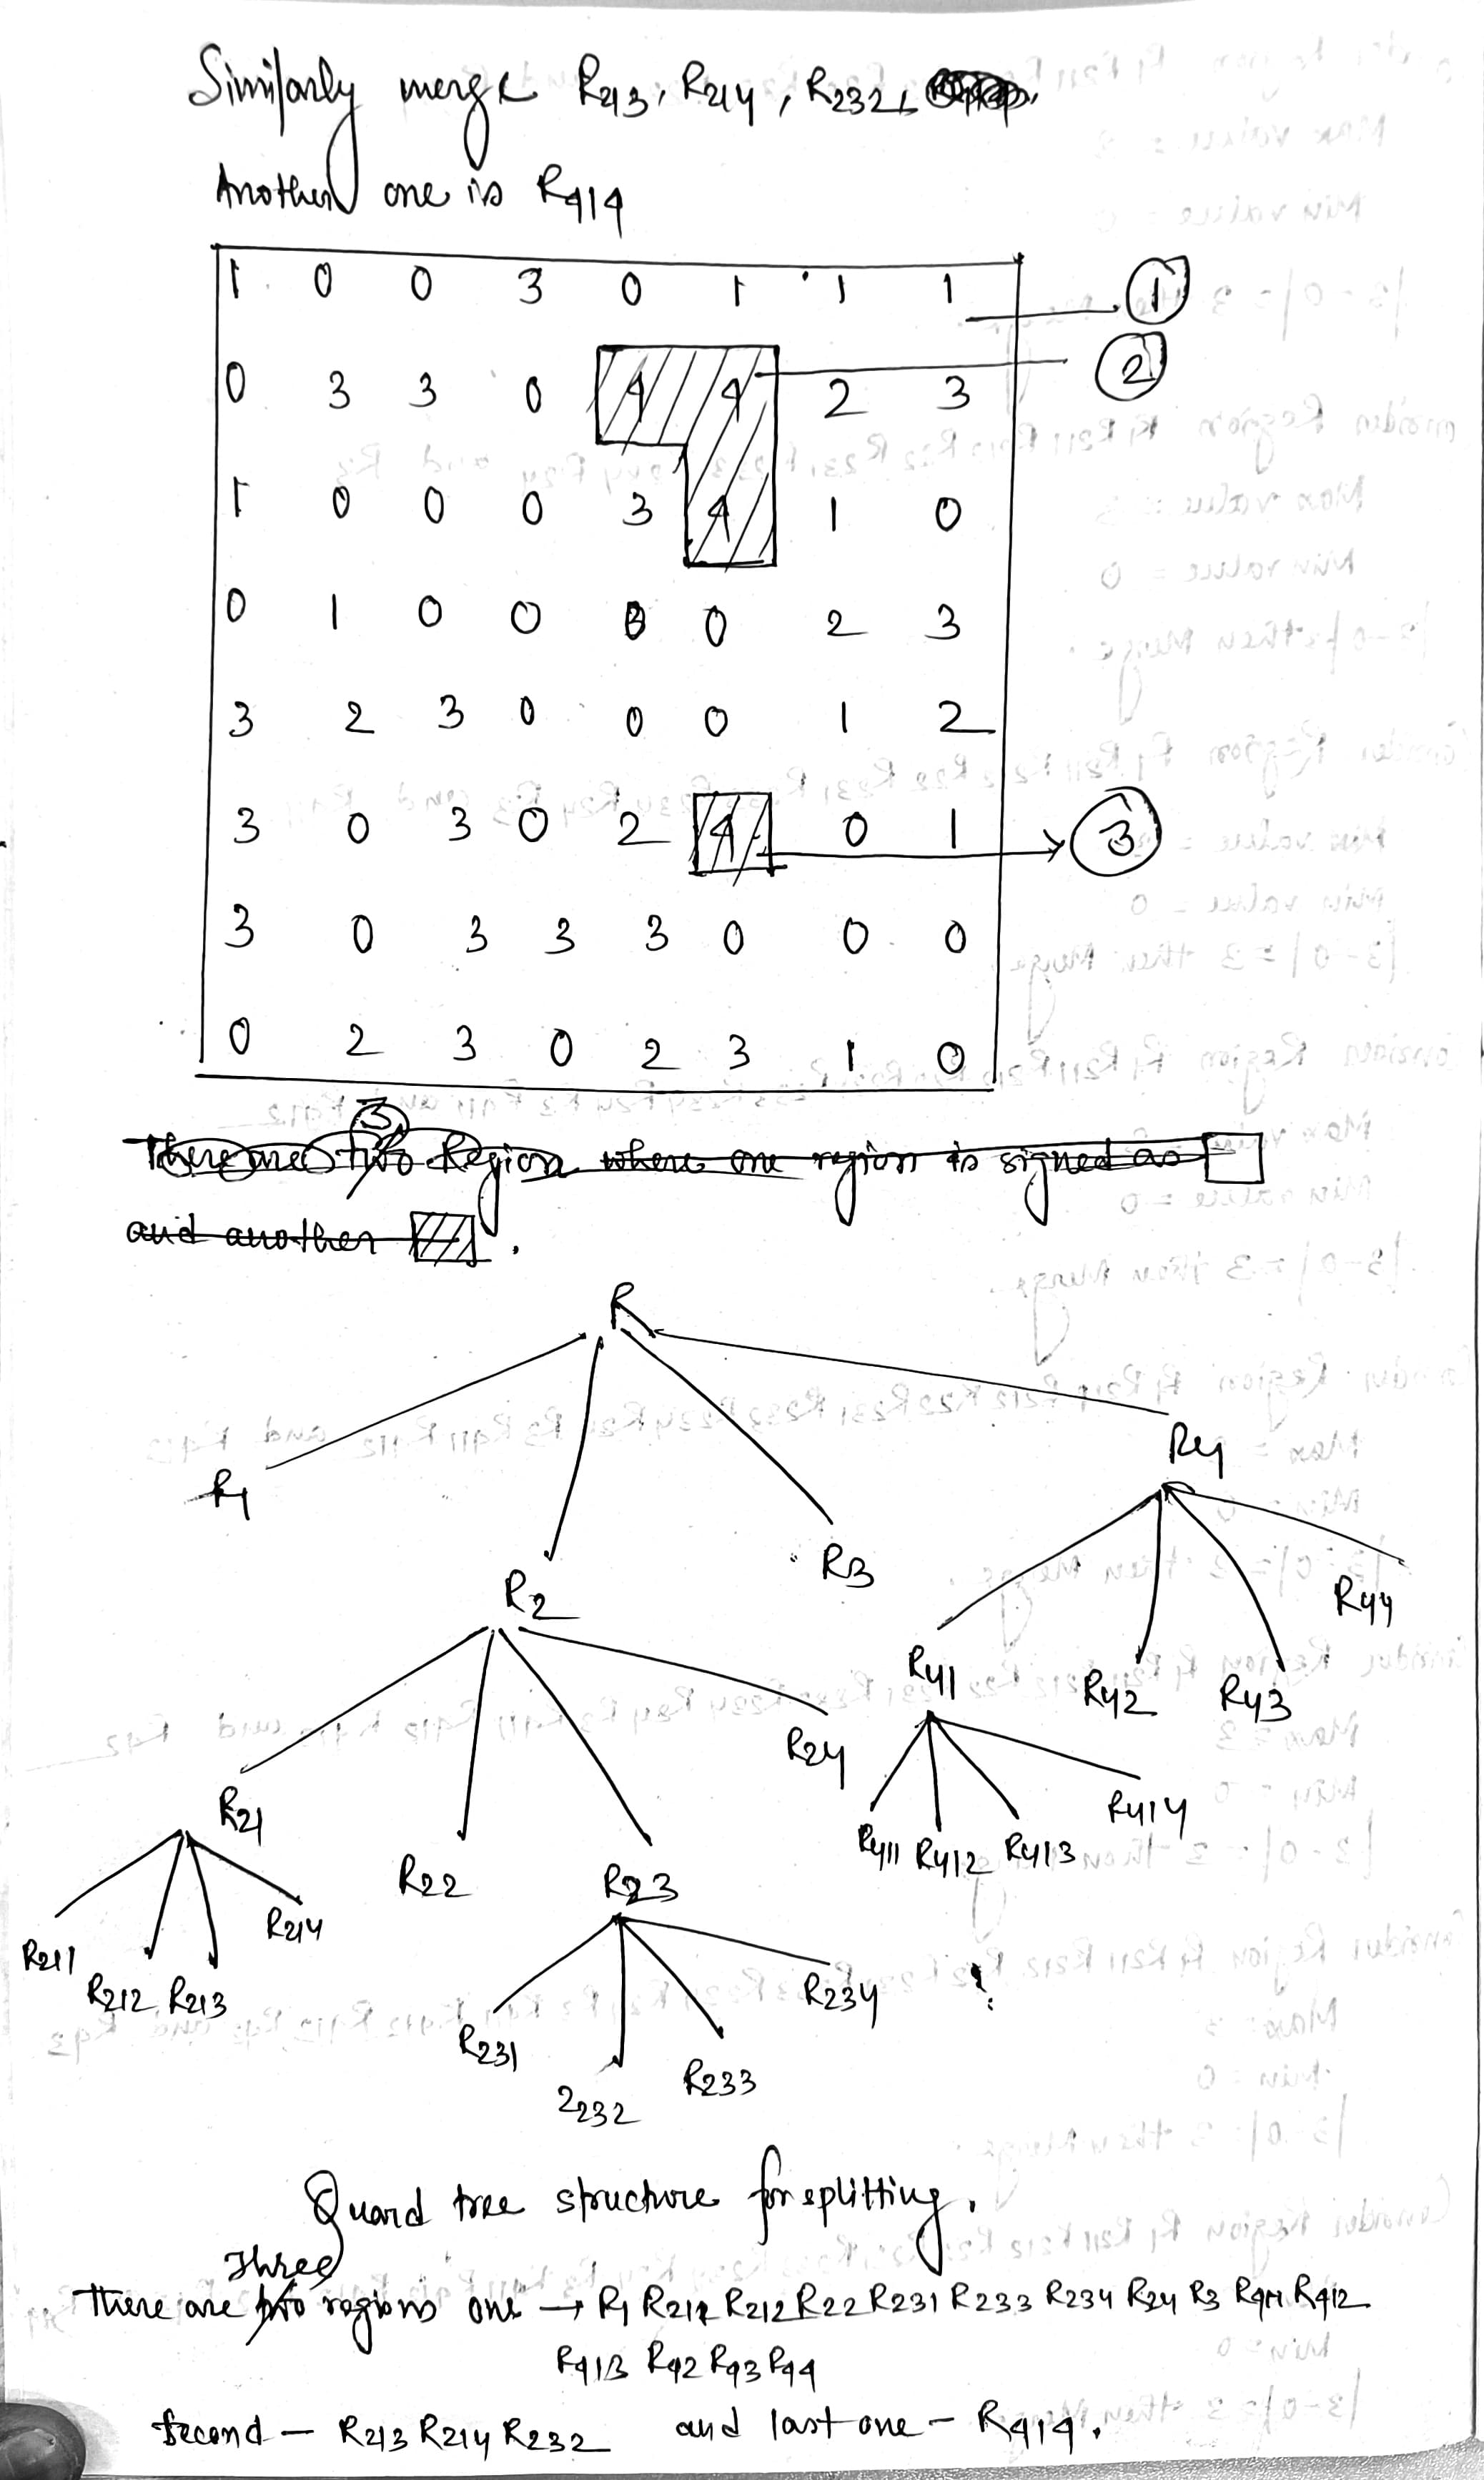 Similarly merge R213, R214, R232,
Another one is R414
1 0 0 3 0 1 1 1 ①
0 3 3 0 4 4 2 3 ②
1 0 0 0 3 4 1 0
0 1 0 0 0 2 3
3 2 3 0 0 0 1 2
3 0 3 0 2 4 0 1 ③
3 0 3 3 3 0 0 0
0 2 3 0 2 3 1 0
3
There are two Region where one region is signed as
and another .
R
R1 R2 R3 R4
R21 R22 R23 R24 R41 R42 R43 R44
R211 R212 R213 R214 R231 2232 R233 R234 R411 R412 R413 R414
Quard tree structure for splitting.
Three
There are two regions one → R1 R211 R212 R22 R231 R233 R234 R24 R3 R411 R412
R413 R42 R43 R44
Second — R213 R214 R232 and last one — R414.